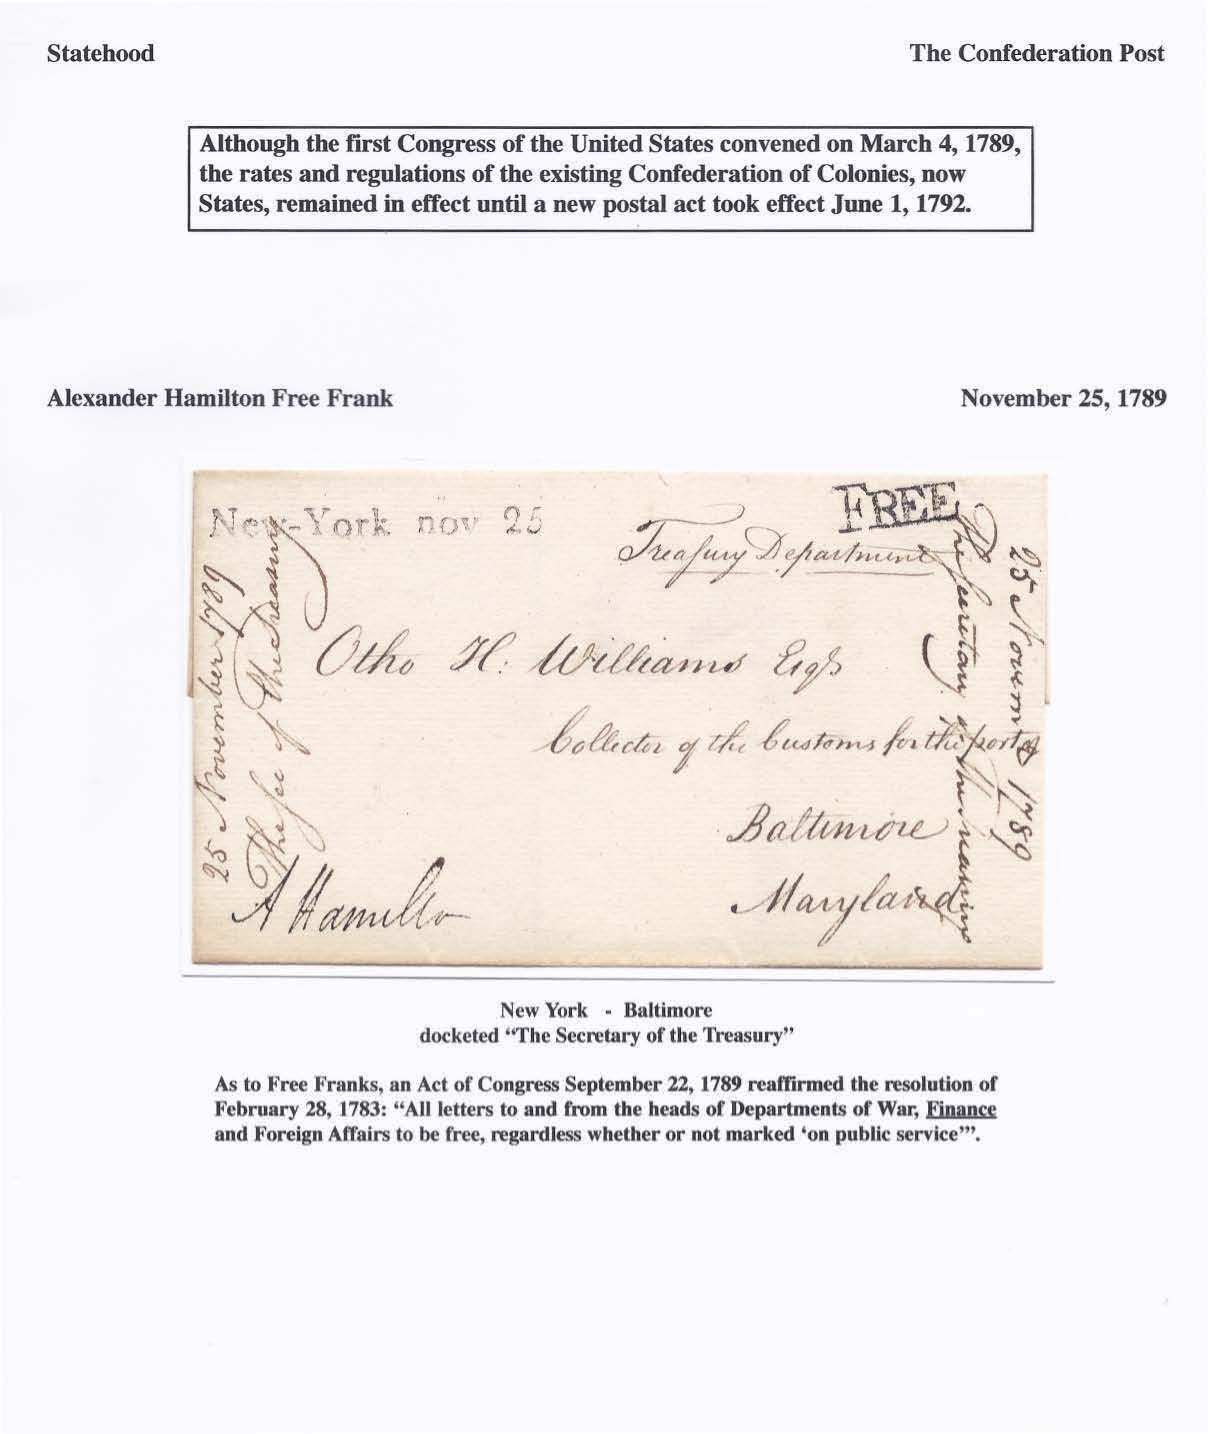 Statehood
The Confederation Post
Although the first Congress of the United States convened on March 4, 1789,
the rates and regulations of the existing Confederation of Colonies, now
States, remained in effect until a new postal act took effect June 1, 1792.
Alexander Hamilton Free Frank
November 25, 1789
New-York nov 25
FREE
Treasury Department
Otho H. Williams Esqr
Collector of the Customs for the port of
Baltimore
Maryland
A Hamilton
25 November 1789
The Sec of the Treasury
The Secretary of the Treasury
25 Novemr 1789
New York - Baltimore
docketed “The Secretary of the Treasury”
As to Free Franks, an Act of Congress September 22, 1789 reaffirmed the resolution of
February 28, 1783: “All letters to and from the heads of Departments of War, Finance
and Foreign Affairs to be free, regardless whether or not marked ‘on public service’”.